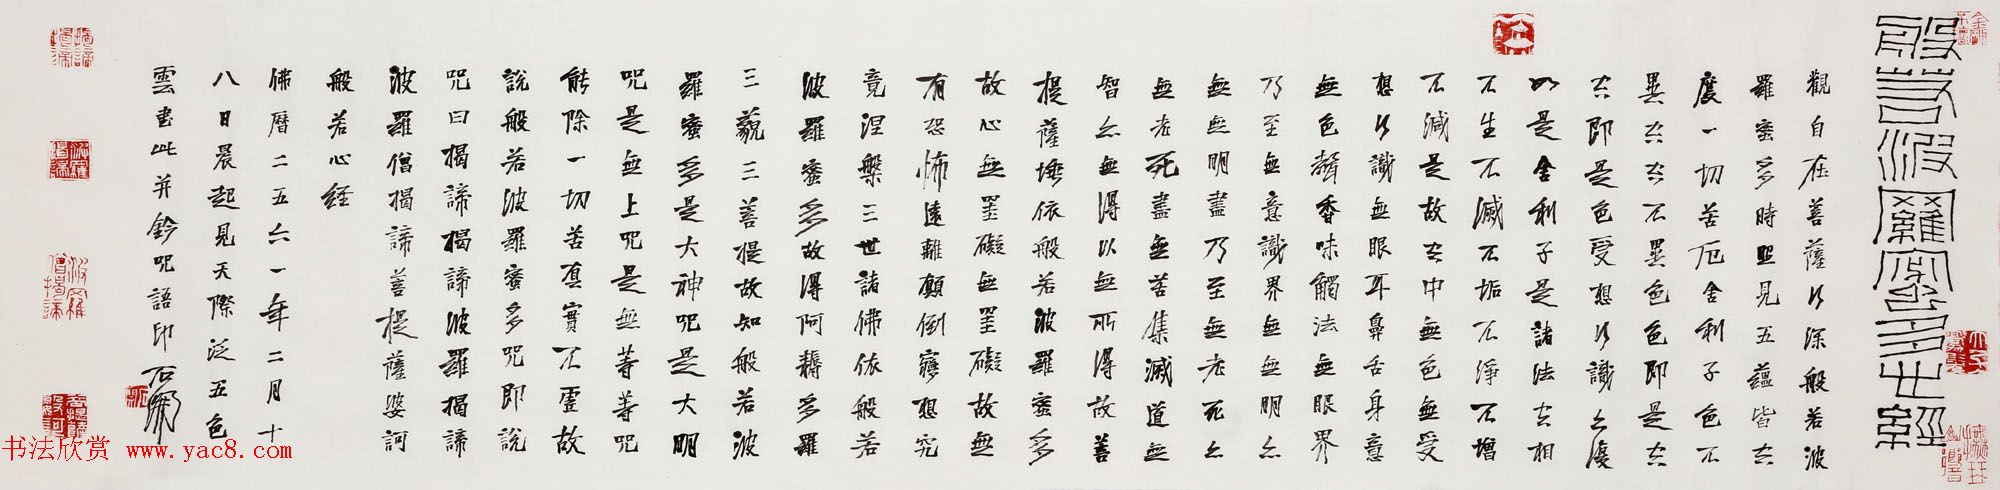 般若波羅蜜多心經
觀自在菩薩行深般若波
羅蜜多時照見五蘊皆空
度一切苦厄舍利子色不
異空空不異色色即是空
空即是色受想行識亦復
如是舍利子是諸法空相
不生不滅不垢不淨不增
不減是故空中無色無受
想行識無眼耳鼻舌身意
無色聲香味觸法無眼界
乃至無意識界無無明亦
無無明盡乃至無老死亦
無老死盡無苦集滅道無
智亦無得以無所得故菩
提薩埵依般若波羅蜜多
故心無罣礙無罣礙故無
有恐怖遠離顛倒夢想究
竟涅槃三世諸佛依般若
波羅蜜多故得阿耨多羅
三藐三菩提故知般若波
羅蜜多是大神呪是大明
呪是無上呪是無等等呪
能除一切苦真實不虛故
說般若波羅蜜多呪即說
呪曰揭諦揭諦波羅揭諦
波羅僧揭諦菩提薩婆訶
般若心经
佛曆二五六一年二月十
八日晨起見天際泛五色
雲書此并鈐呪語印 石開
揭諦揭諦
波羅揭諦
波羅僧揭諦
菩提薩婆訶
书法欣赏 www.yac8.com